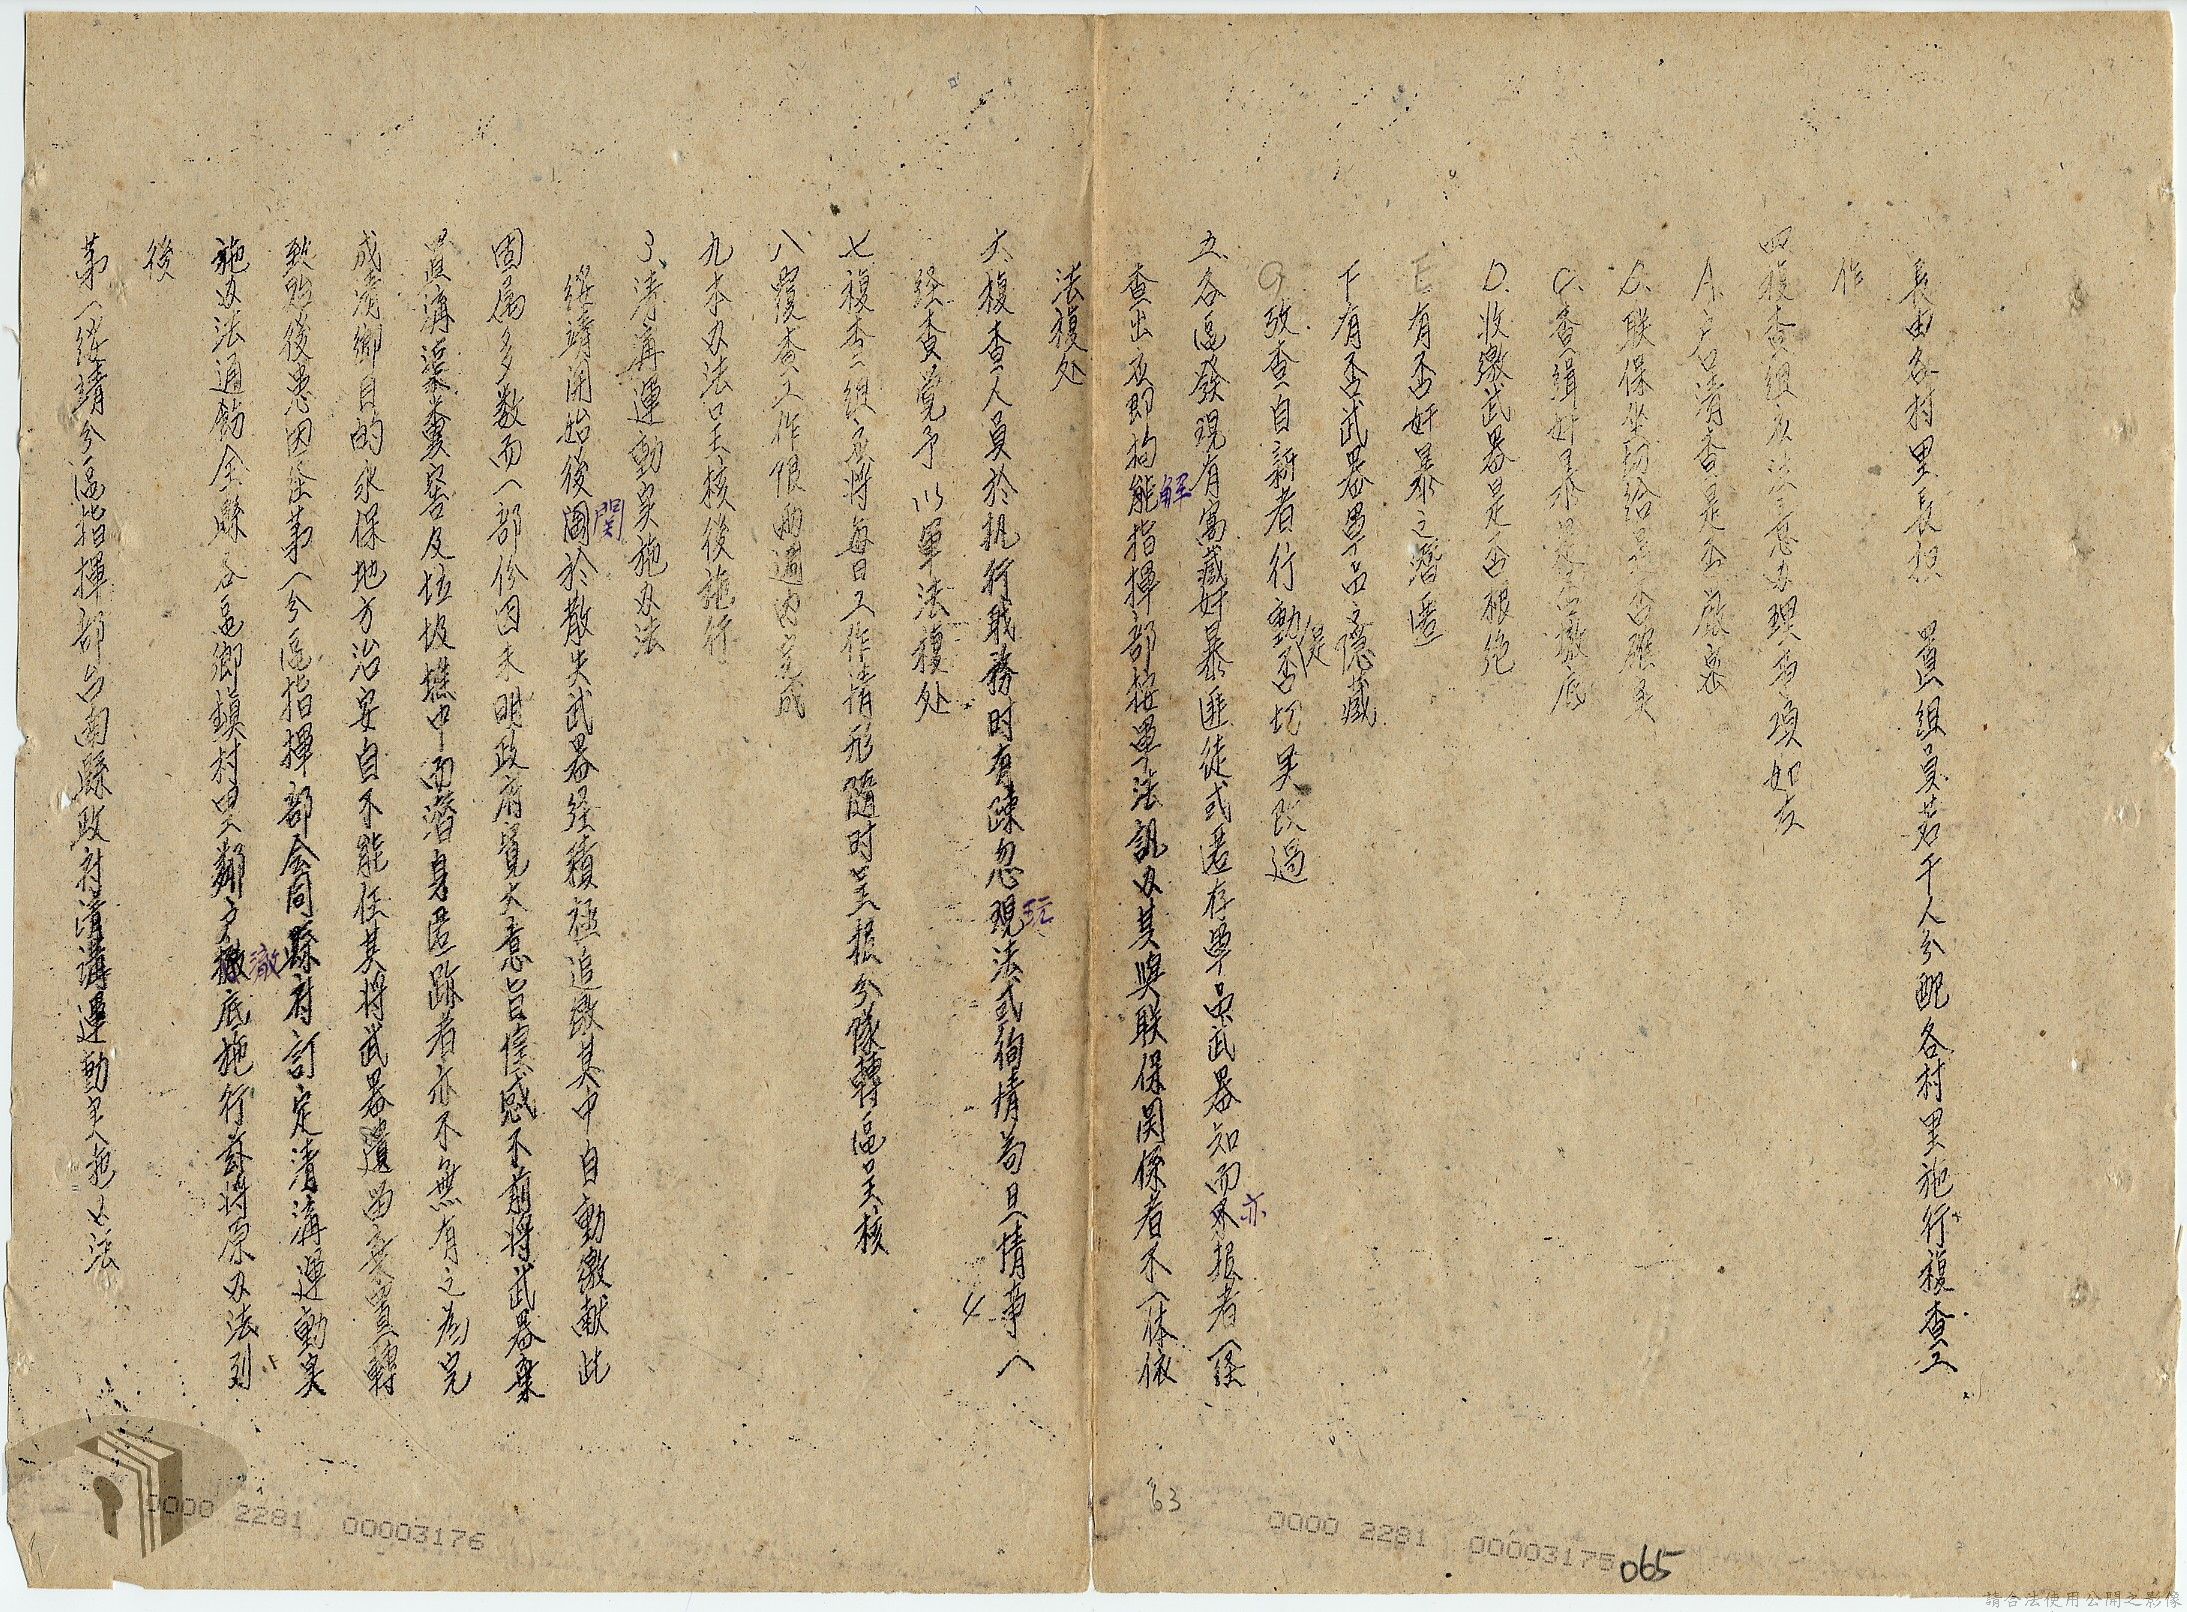 長由各村里長担 置組員若干人分配各村里施行複查工
作
四複查組应注意办理事項如左
A.户口清查是否嚴密
C.联保坐切给是否確実
C.查緝奸暴是否撤底
D.收繳武器是否根绝
E有否奸暴之潛匿
F有否武器軍品之隱藏
G攷查自新者行動是否切実改過
五.各區發現有窩藏奸暴匪徒或匿存軍品武器知而不報者一经
查出应即拘解指揮部按軍法訊办其與联保関係者不一体依
法複处
六.複查人員於执行職務时有疎忽玩法或徇情苟且情事一
经查覺予以軍法複处
七複查組应将每日工作情形隨时呈报分隊轉區呈核
八覆查工作限兩週内完成
九本办法呈核後施行
3.清溝運動実施办法
綏靖開始後関於散失武器经積極追缴其中自動繳献此
固屬多数而一部份因未明政府寬大意旨惶惑不前將武器棄
置溝渠糞窖及垃圾堆中而潛身匿跡者亦不無有之為完
成清鄉目的永保地方治安自不能任其将武器遺留棄置轉
致貽後患因在第一分區指揮部会同縣府訂定清溝運動実
施办法通飭全縣各區鄉鎮村里鄰户徹底施行茲将原办法列
後
第一綏靖分區指揮部台南縣政府清溝運動実施办法
解
関
玩
亦
澈
4
63
0000 2281 00003176
0000 2281 00003175
065
請合法使用公開之影像